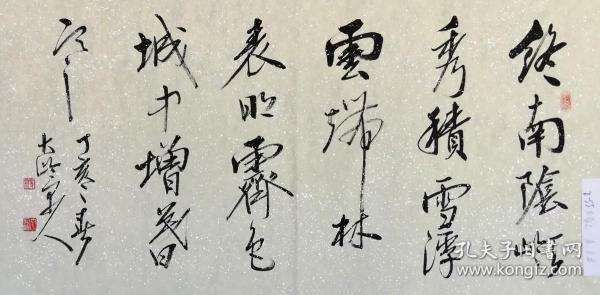 終南陰嶺
秀積雪浮
雲端林
表明霽色
城中增暮
寒
丁亥春
孔夫子旧书网
www.kongfz.com